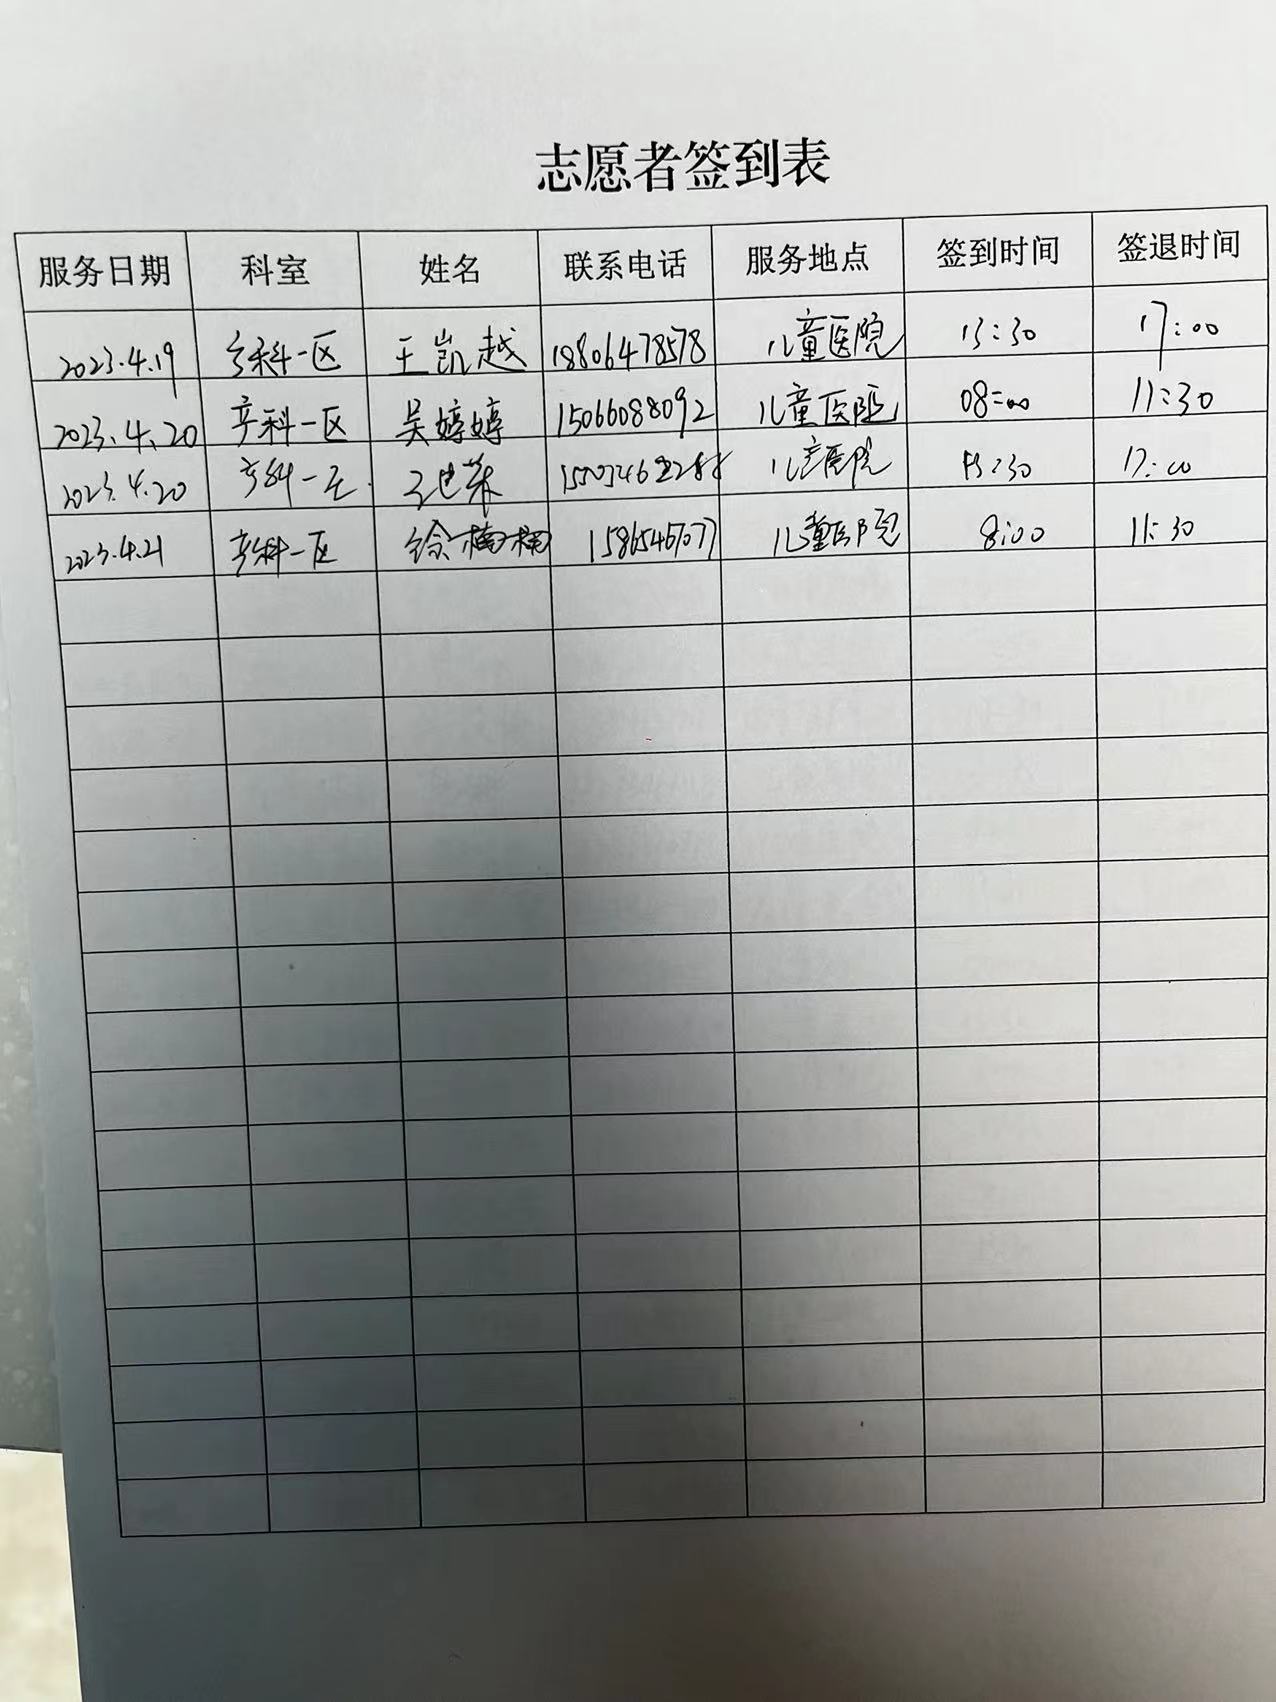 志愿者签到表
服务日期 科室 姓名 联系电话 服务地点 签到时间 签退时间
2023.4.19 产科一区 王凯越 18806478578 儿童医院 13:30 17:00
2023.4.20 产科一区 吴婷婷 15066088092 儿童医院 08:00 11:30
2023.4.20 产科一区 儿童医院 13:30 17:00
2023.4.21 产科一区 徐楠楠 儿童医院 8:00 11:30